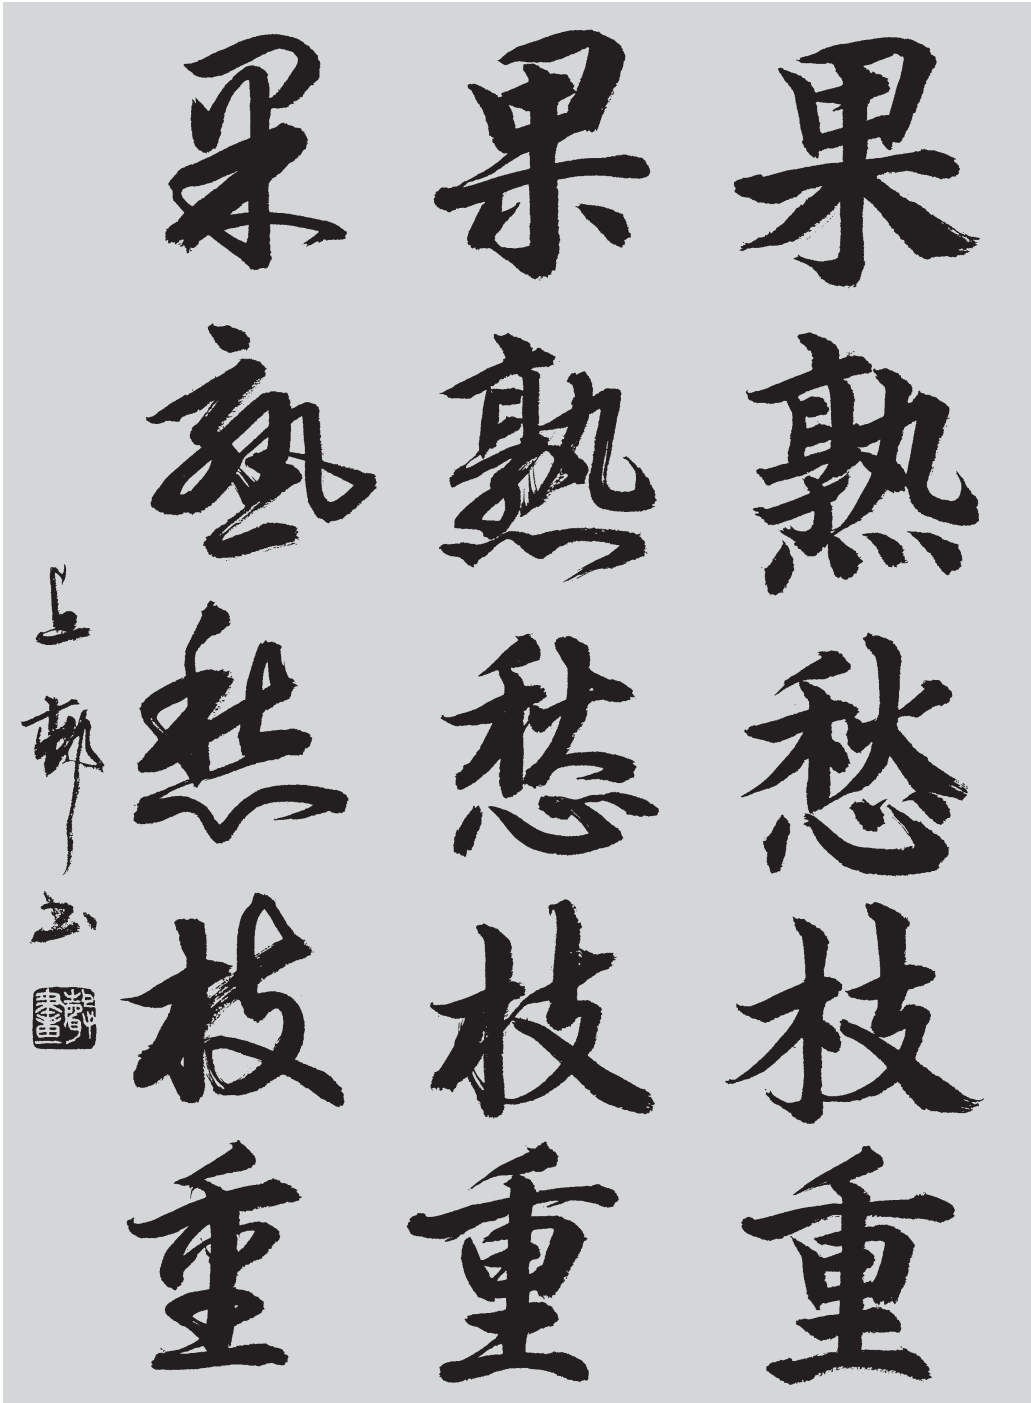 果熟愁枝重
果熟愁枝重
果熟愁枝重
上邨书